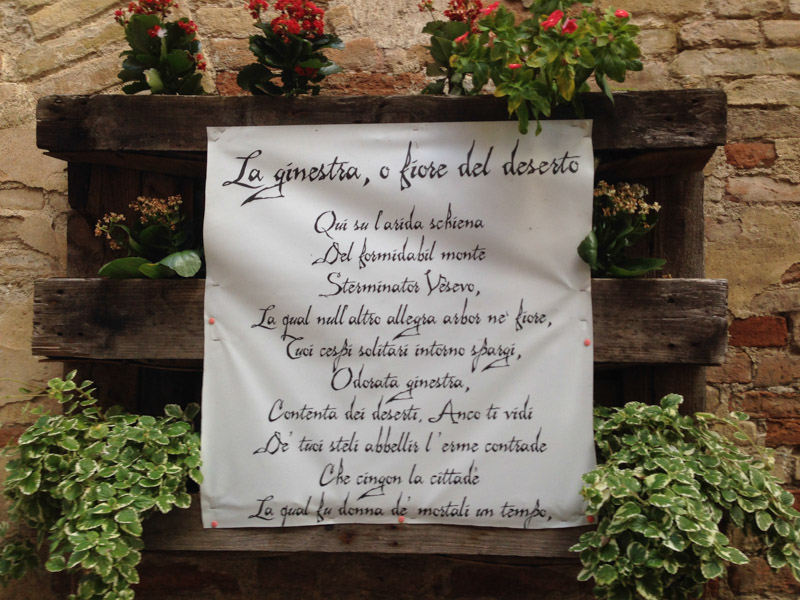 La ginestra, o fiore del deserto
Qui su l'arida schiena
Del formidabil monte
Sterminator Vèsevo,
La qual null'altro allegra arbor nè fiore,
Tuoi cespi solitari intorno spargi,
Odorata ginestra,
Contenta dei deserti. Anco ti vidi
De' tuoi steli abbellir l'erme contrade
Che cingon la cittade
La qual fu donna de' mortali un tempo,